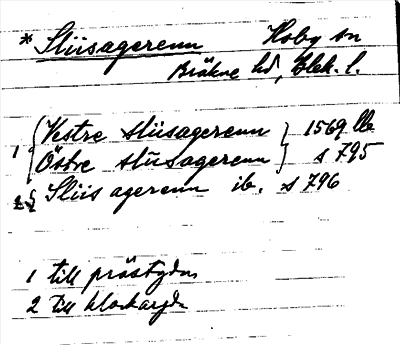 * Sliisagerenn Hoby sn
Bräkne hd, Blek. l.
1 { Vestre sliisagerenn } 1569 llb
Östre sliisagerenn } s 795
2 { Sliis agerenn ib. s 796
1 till prästgdn
2 till klockargdn